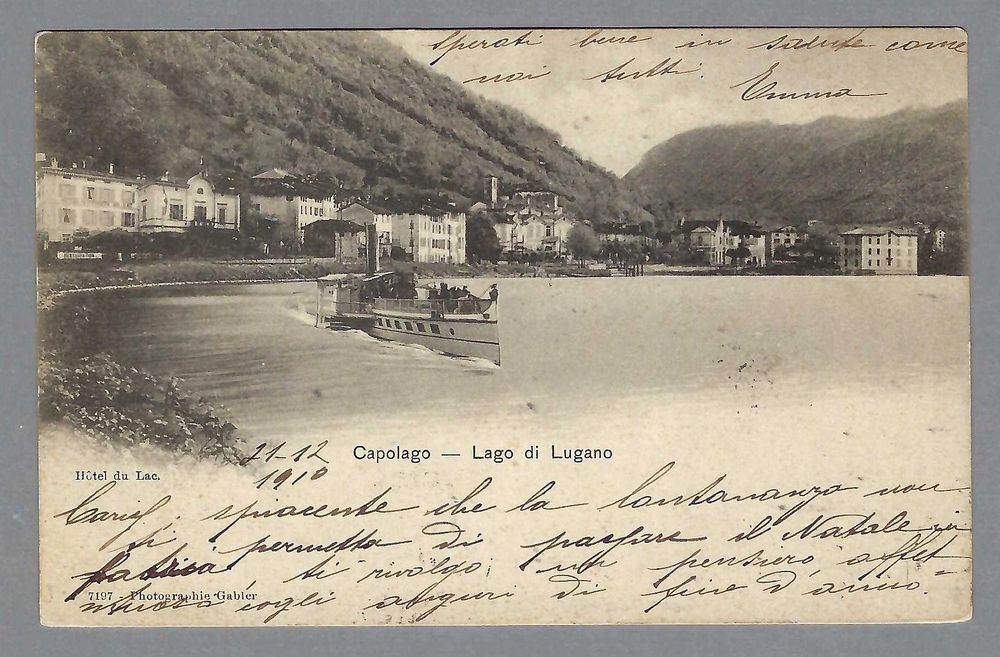 Sperati bene in salute come
noi tutti.
Emma
21-12
1910
Capolago — Lago di Lugano
Hôtel du Lac.
spiacente che la lontananza non
ti permetta di passare il Natale in
patria, ti rivolgo un pensiero affet
cogli auguri di fine d'anno.
7197 - Photographie Gabler